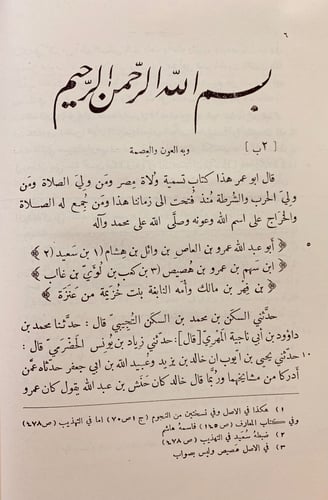 ٦
بسم الله الرحمن الرحيم
[ ٢ب ] وبه العون والعصمة
قال ابو عمر هذا كتاب تسمية وُلاة مِصر ومَن وليَ الصلاة ومَن
وليَ الحرب والشرطة مُنذ فُتحت الى زماننا هذا ومَن جُمِع له الصلاة
والخَراج على اسم الله وعونه وصلَّى الله على محمد وآله
٥ ﴿ أبو عبد الله عمرو بن العاص بن وائل بن هِشام (١ بن سَعيد (٢ ﴾
﴿ ابن سَهم بن عمرو بن هُصَيص (٣ بن كعب بن لُوَيّ بن غالب ﴾
﴿ بن فِهر بن مالك وأمه النابغة بنت خُزيمة من عَنَزة ﴾
حدَّثني السَكَن بن محمد بن السكن التُّجِيبيّ قال : حدَّثنا محمد بن
داوود بن أبي ناجية المَهريّ [قال]: حدَّثني زياد بن يُونُس الحَضْرَميّ قال :
١٠ حدَّثني يحيى بن أيوب ان خالد بن يزيد وعُبيد الله بن ابي جعفر حدَّثاه عمَّن
أدركا من مشايخهما وربَّما قال خالد كان حَنَش بن عبد الله يقول كان عمرو
١) هكذا في الاصل وفي نسختين من النجوم (ج ١ ص ٧٠) اما في التهذيب (ص ٤٧٨)
وفي كتاب المعارف (ص ١٤٥) فاسمه هاشم
٢) ضبطهُ سُعَيد في التهذيب (ص ٤٧٨)
٣) في الاصل هَصِيص وليس بصواب